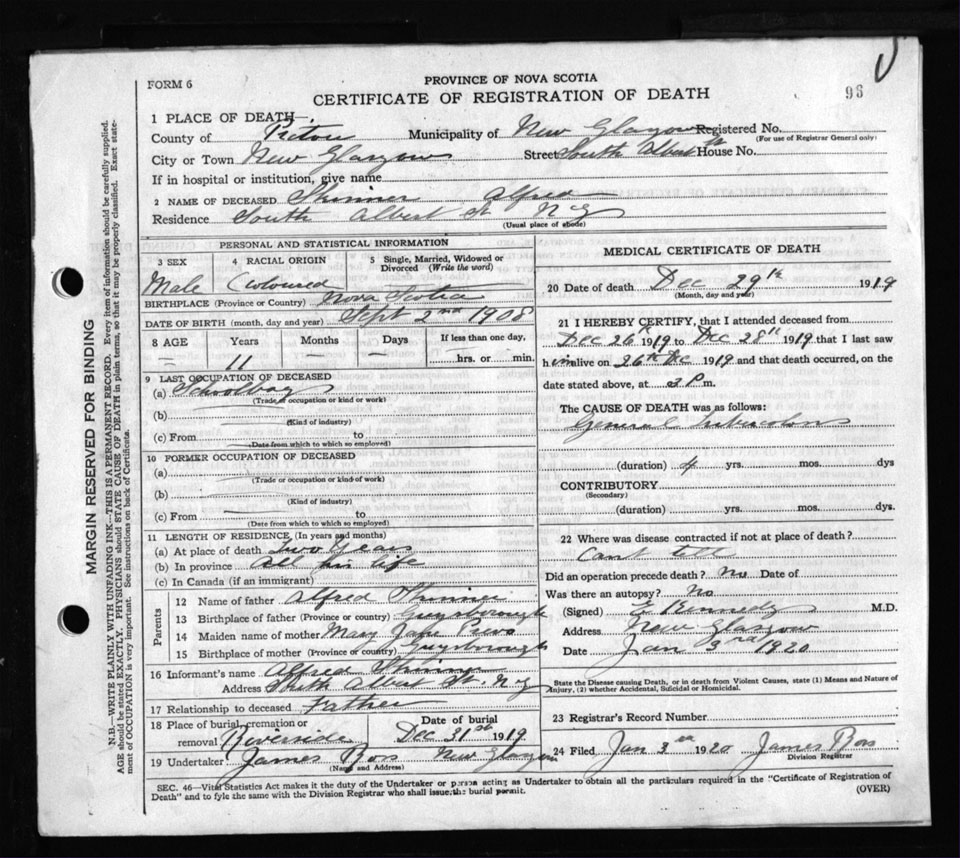 FORM 6
PROVINCE OF NOVA SCOTIA
CERTIFICATE OF REGISTRATION OF DEATH
96
1 PLACE OF DEATH—
County of Pictou Municipality of New Glasgow Registered No.
(For use of Registrar General only)
City or Town New Glasgow Street South Albert St House No.
If in hospital or institution, give name
2 NAME OF DECEASED Skinner Alfred
Residence South Albert St N G
(Usual place of abode)
PERSONAL AND STATISTICAL INFORMATION
3 SEX 4 RACIAL ORIGIN 5 Single, Married, Widowed or Divorced (Write the word)
Male Coloured
BIRTHPLACE (Province or Country) Nova Scotia
DATE OF BIRTH (month, day and year) Sept 2nd 1908
8 AGE Years Months Days If less than one day,
– 11 – – hrs. or min.
9 LAST OCCUPATION OF DECEASED
(a) Schoolboy
(Trade or occupation or kind or work)
(b)
(Kind of industry)
(c) From to
(Date from which to which so employed)
10 FORMER OCCUPATION OF DECEASED
(a)
(Trade or occupation or kind of work)
(b)
(Kind of industry)
(c) From to
(Date from which to which so employed)
11 LENGTH OF RESIDENCE (In years and months)
(a) At place of death Two years
(b) In province all his life
(c) In Canada (if an immigrant)
Parents
12 Name of father Alfred Skinner
13 Birthplace of father (Province or country) Guysborough
14 Maiden name of mother Mary Jane
15 Birthplace of mother (Province or country) Guysborough
16 Informant's name Alfred Skinner
Address South Albert St. N G
17 Relationship to deceased Father
18 Place of burial, cremation or removal Riverside
Date of burial Dec 31st 1919
19 Undertaker James Ross New Glasgow
(Name and Address)
MEDICAL CERTIFICATE OF DEATH
20 Date of death Dec 29th 1919
(Month, day and year)
21 I HEREBY CERTIFY, that I attended deceased from
Dec 26th 1919 to Dec 28th 1919 that I last saw
him alive on 26th Dec 1919 and that death occurred, on the
date stated above, at 3 P m.
The CAUSE OF DEATH was as follows:
General tuberculosis
(duration) 4 yrs. mos. dys
CONTRIBUTORY
(Secondary)
(duration) yrs. mos. dys.
22 Where was disease contracted if not at place of death?
Cant tell
Did an operation precede death? No Date of
Was there an autopsy? No
(Signed) E Kennedy M.D.
Address New Glasgow
Date Jan 3rd 1920
State the Disease causing Death, or in death from Violent Causes, state (1) Means and Nature of
Injury, (2) whether Accidental, Suicidal or Homicidal.
23 Registrar's Record Number
24 Filed Jan 3rd 1920 James Ross
Division Registrar
SEC. 46—Vital Statistics Act makes it the duty of the Undertaker or person acting as Undertaker to obtain all the particulars required in the "Certificate of Registration of
Death" and to fyle the same with the Division Registrar who shall issue the burial permit.
(OVER)
MARGIN RESERVED FOR BINDING
N.B.—WRITE PLAINLY WITH UNFADING INK—THIS IS A PERMANENT RECORD. Every item of information should be carefully supplied.
AGE should be stated EXACTLY. PHYSICIANS should STATE CAUSE OF DEATH in plain terms, so that it may be properly classified. Exact state-
ment of OCCUPATION is very important. See instructions on back of Certificate.